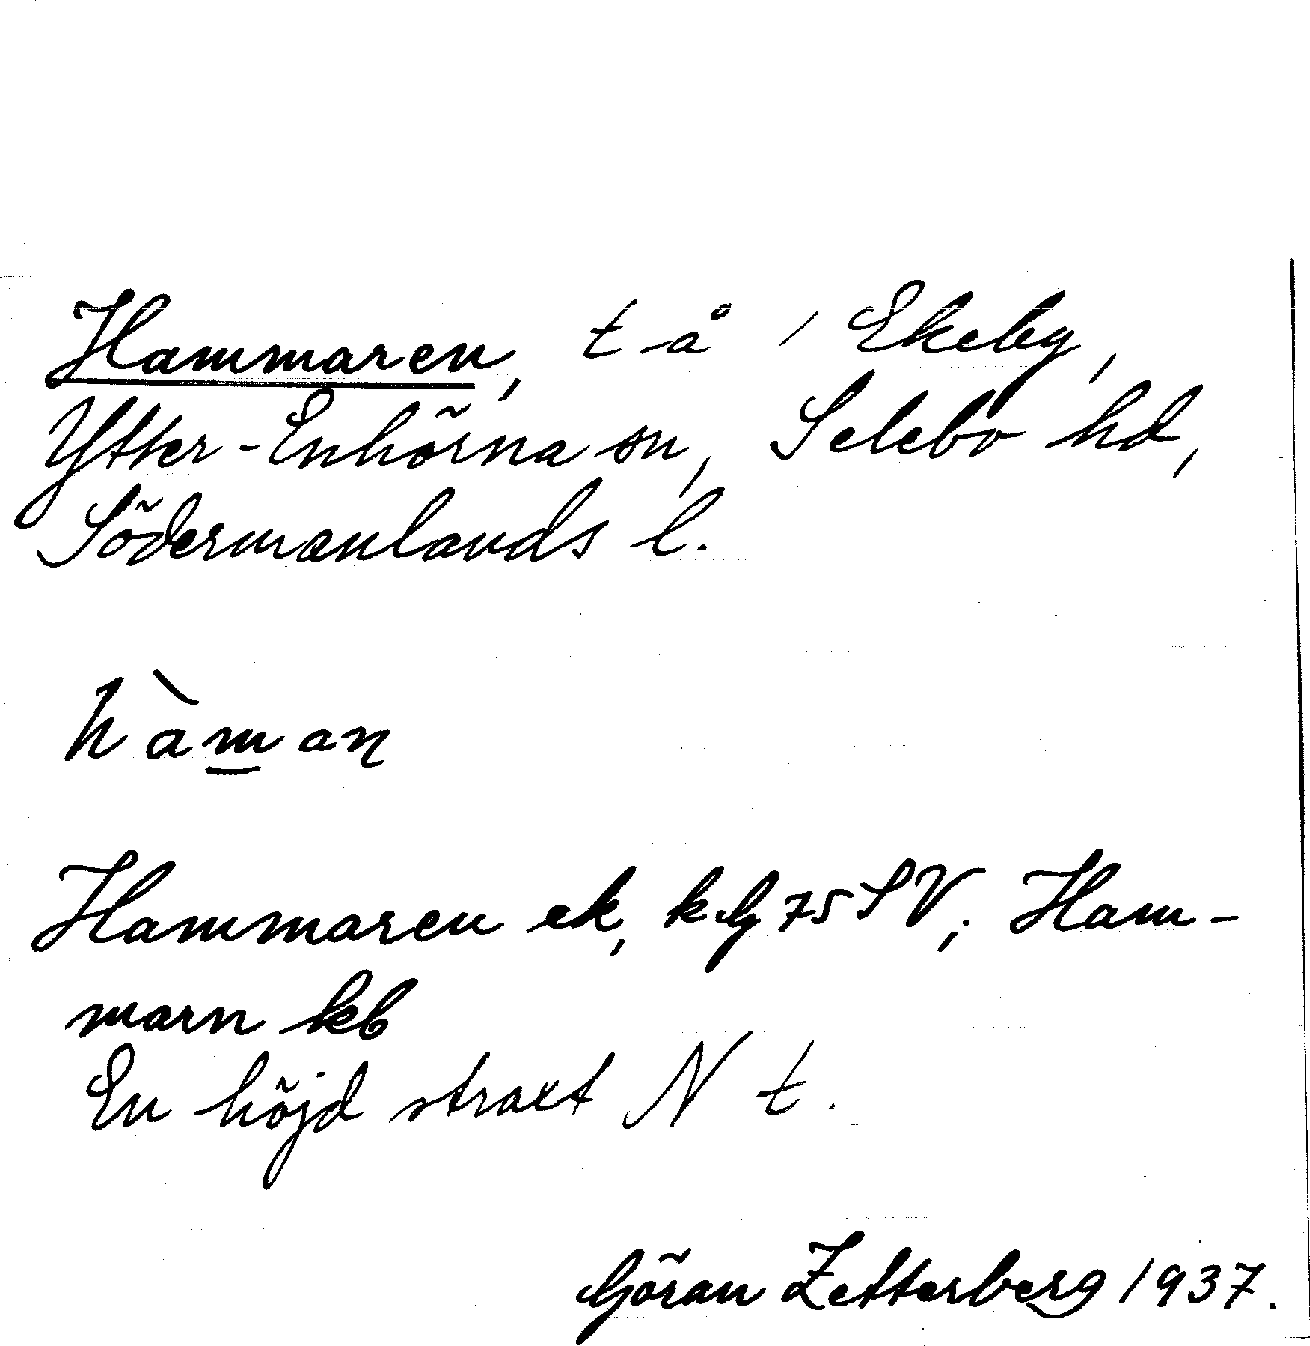 Hammaren, t å / Ekeby,
Ytter-Enhörna sn, Selebo hd,
Södermanlands l.
hàman
Hammaren ek, kbg 75 SV; Ham-
marn kb
En höjd straxt N t.
Göran Zetterberg 1937.